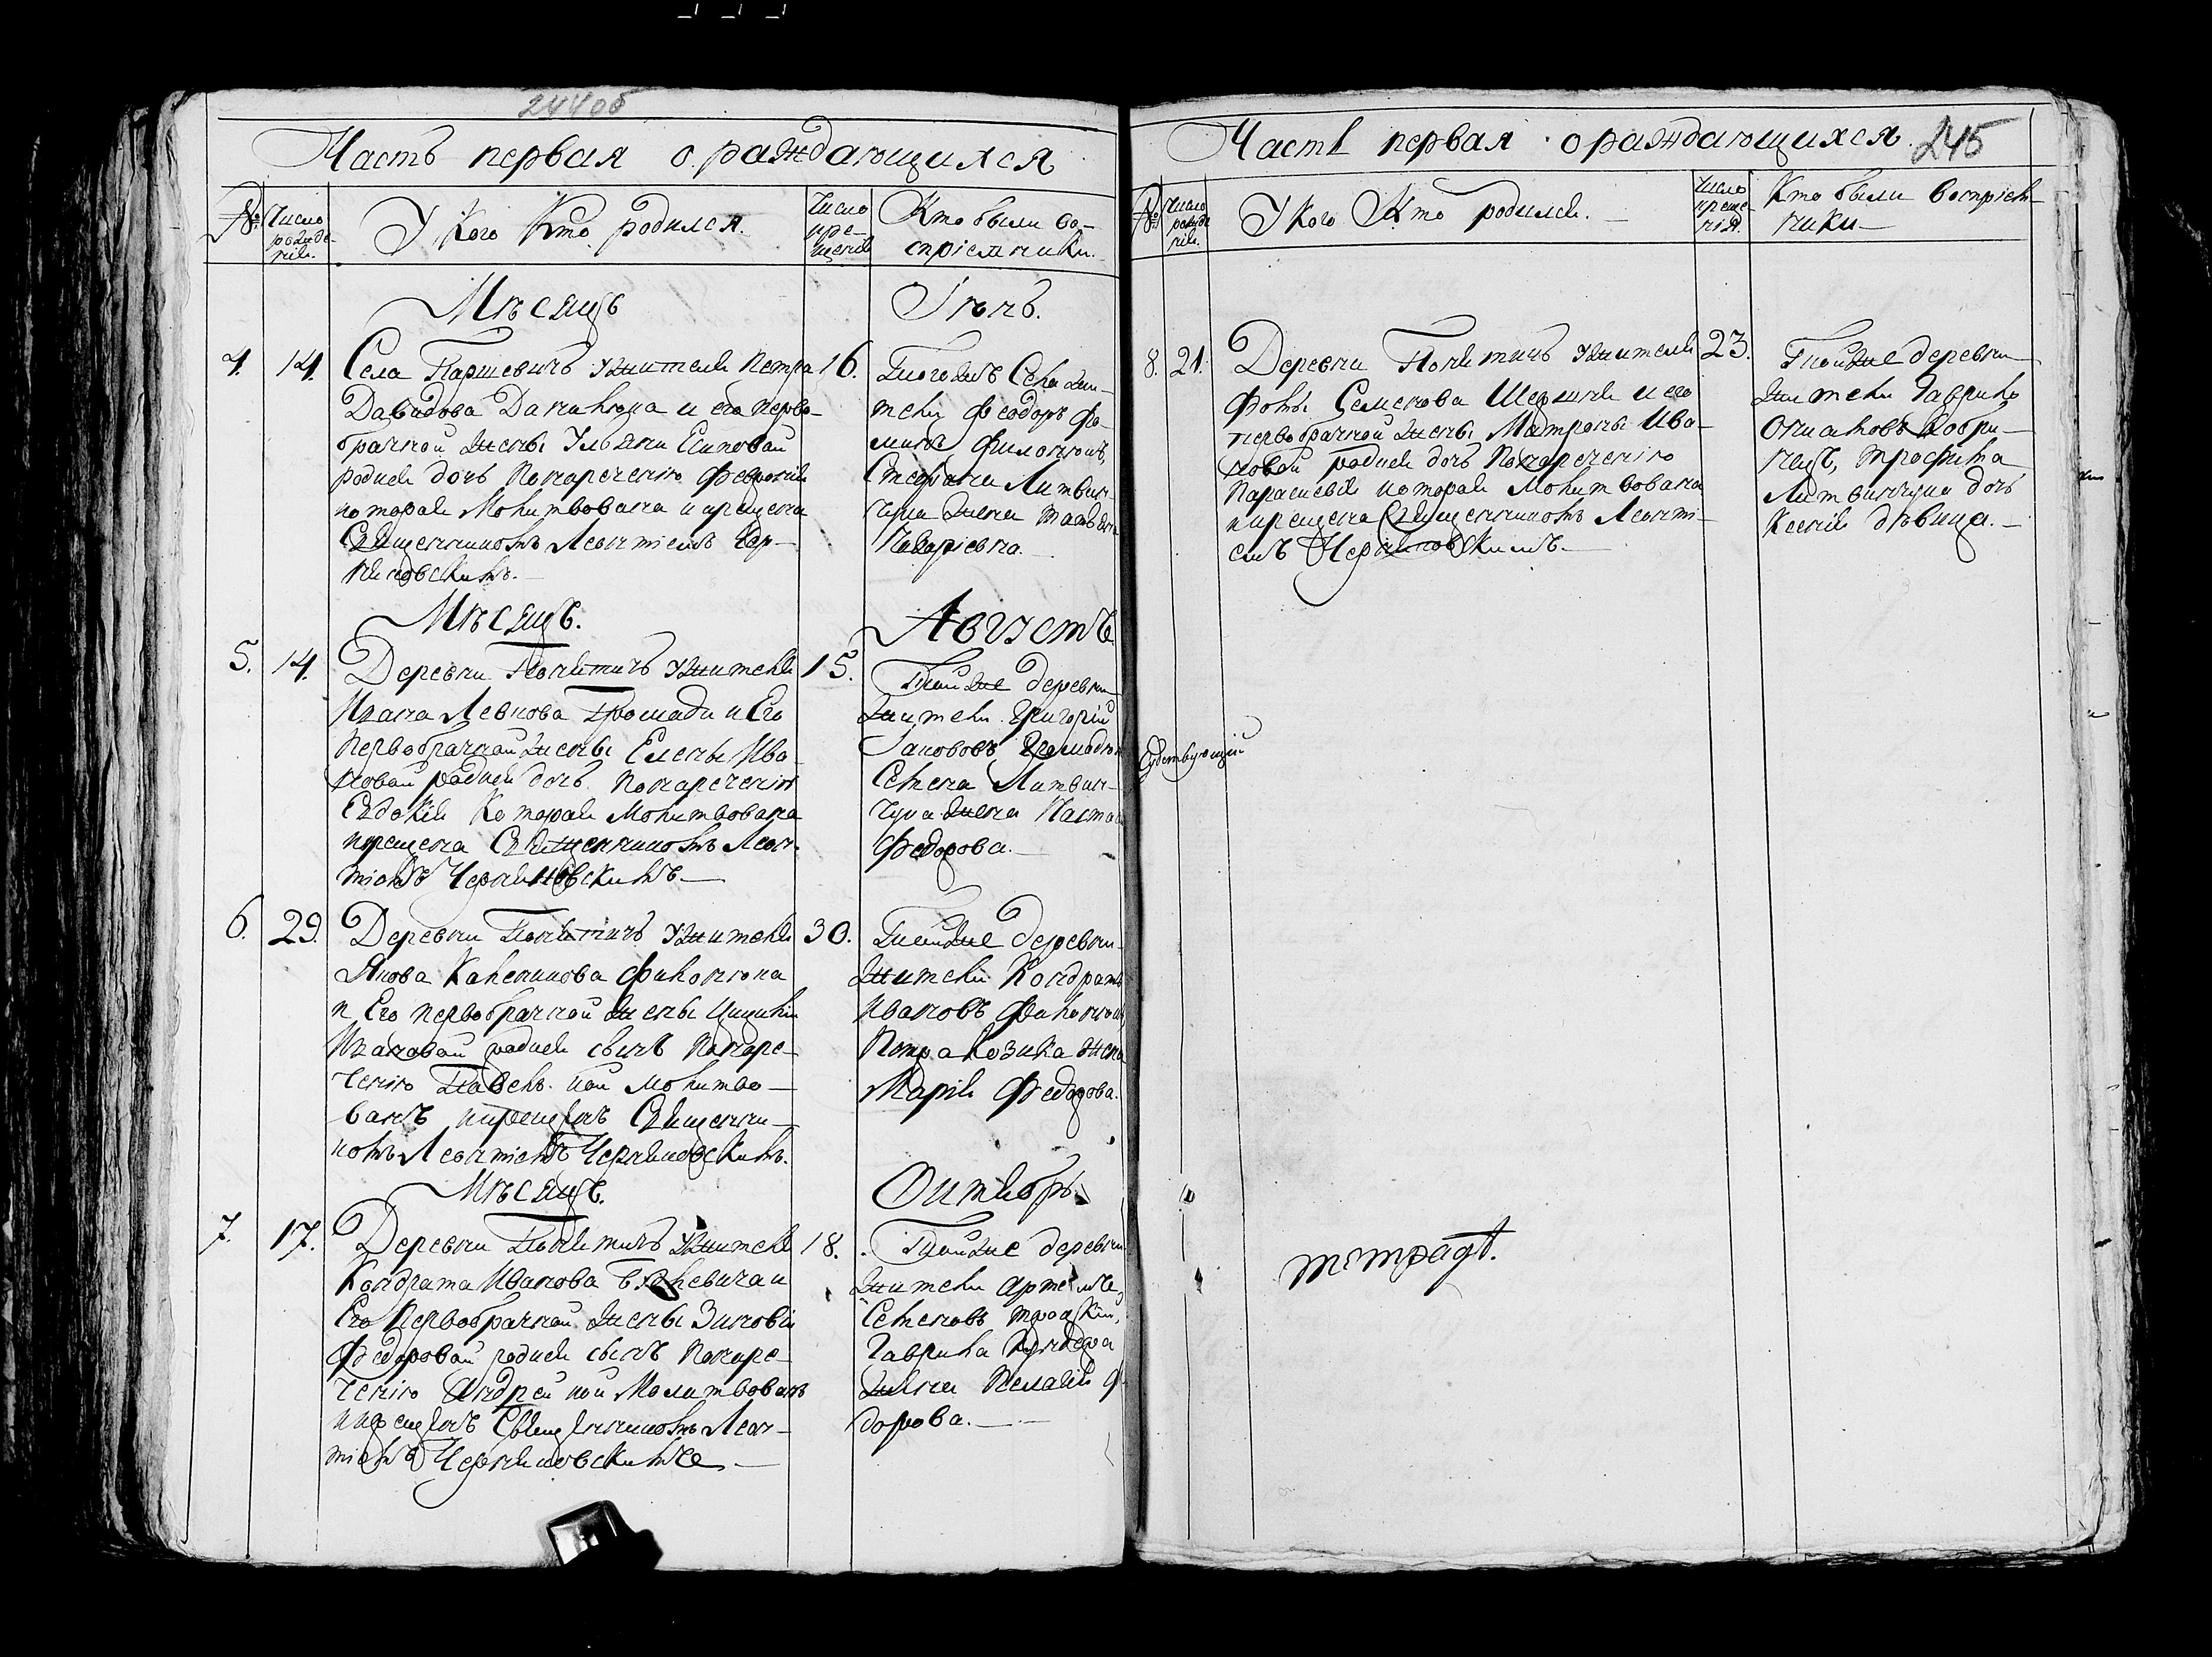 244об
Часть первая о раждающихся
№ Число рожденія. У Кого Кто родился. Число крещенія Кто были восприемники.
Мѣсяцъ Іюнь.
4. 14. 16.
Села Паршевичъ Жителя Петра
Давидова Данилюка и его перво-
брачной жены Ульяни Есиповой
родися дочь Понареченію Февронія
которая Молитвована икрещена
Священникомъ Леонтіемъ Чер-
няковскимъ.
Тогожъ Села Жи-
тели Феодоръ Фо-
минъ Филонюкъ,
Стефана Литвин-
чука Жена Татіяна
Назаріевна.
Мѣсяцъ. Августъ
5. 14. 15.
Деревни Понятичъ Жителя
Ивана Левкова Громади и Его
Первобрачной жены Елены Ива-
новой родися дочь Понареченію
Евдокія Которая Молитвована
икрещена Священникомъ Леон-
тіемъ Черняковскимъ.
Тойже деревни
Жители Григорій
Яковъ
Семена Литвин-
чука Жена Наста
Федорова.
6. 29. 30.
Деревни Понятичъ Жителя
Якова Каленикова Филонюка
и Его первобрачной жены
Ивановой родися сынъ Понаре-
ченію Павелъ кой Молитво-
ванъ икрещенъ Священни-
комъ Леонтіемъ Черняковскимъ.
Тойже деревни
Жители Кондратъ
Ивановъ Филонюкъ
Петра Козика жена
Марія Федорова.
Мѣсяцъ. Октябрь
7. 17. 18.
Деревни Понятичъ Жителя
Кондрата Иванова
Его Первобрачной Жены Зиновіи
Федоровой родися сынъ Понаре-
ченію Андрей кой Молитвованъ
икрещенъ Священникомъ Леон-
тіемъ Черняковскимъ
Тойже деревни
Жители Артемъ
Семеновъ
Гаврила
Жена Пелагія Ф
дорова.
245
Часть первая о раждающихся.
№ Число рожденія. У Кого Кто родился. Число крещенія. Кто были воспріем-
ники
8. 21. 23.
Деревни Понятичъ Жителя
Фомы Семенова и его
первобрачной жены Матроны Ива-
новой родися дочь Понареченію
Парасковія которая Молитвована
икрещена Священникомъ Леонті-
емъ Черняковскимъ.
Тойже деревни
Жители Гаврило
Трофима
Литвинчука дочь
Ксенія дѣвица.